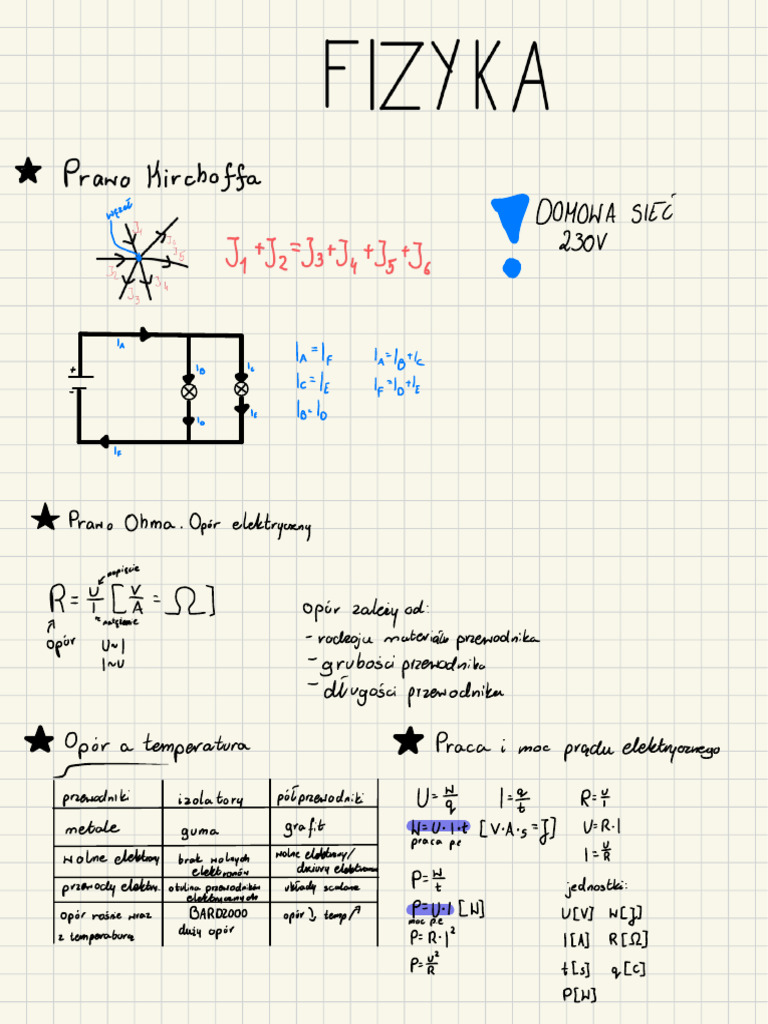 FIZYKA
★ Prawo Kirchoffa
węzeł
J₁
J₂
J₃
J₄
J₅
J₆
J₁+J₂=J₃+J₄+J₅+J₆
DOMOWA SIEĆ
230V
+
-
I_A
I_B
I_C
I_D
I_E
I_F
I_A=I_F I_A=I_B+I_C
I_C=I_E I_F=I_D+I_E
I_B=I_D
★ Prawo Ohma. Opór elektryczny
napięcie
R=U/I [V/A=Ω]
natężenie
opór U~I
I~U
Opór zależy od:
- rodzaju materiału przewodnika
- grubości przewodnika
- długości przewodnika
★ Opór a temperatura
przewodniki izolatory półprzewodniki
metale guma grafit
wolne elektrony brak wolnych elektronów wolne elektrony/dziury elektronowe
przewody elektr. otulina przewodników elektrycznych układy scalone
opór rośnie wraz z temperaturą BARDZOOO duży opór opór↓ temp↗
★ Praca i moc prądu elektrycznego
U=W/q I=q/t R=U/I
W=U·I·t [V·A·s=J] U=R·I
praca p.e
I=U/R
P=W/t
P=U·I [W]
moc p.e
P=R·I²
P=U²/R
jednostki:
U[V] W[J]
I[A] R[Ω]
t[s] q[C]
P[W]